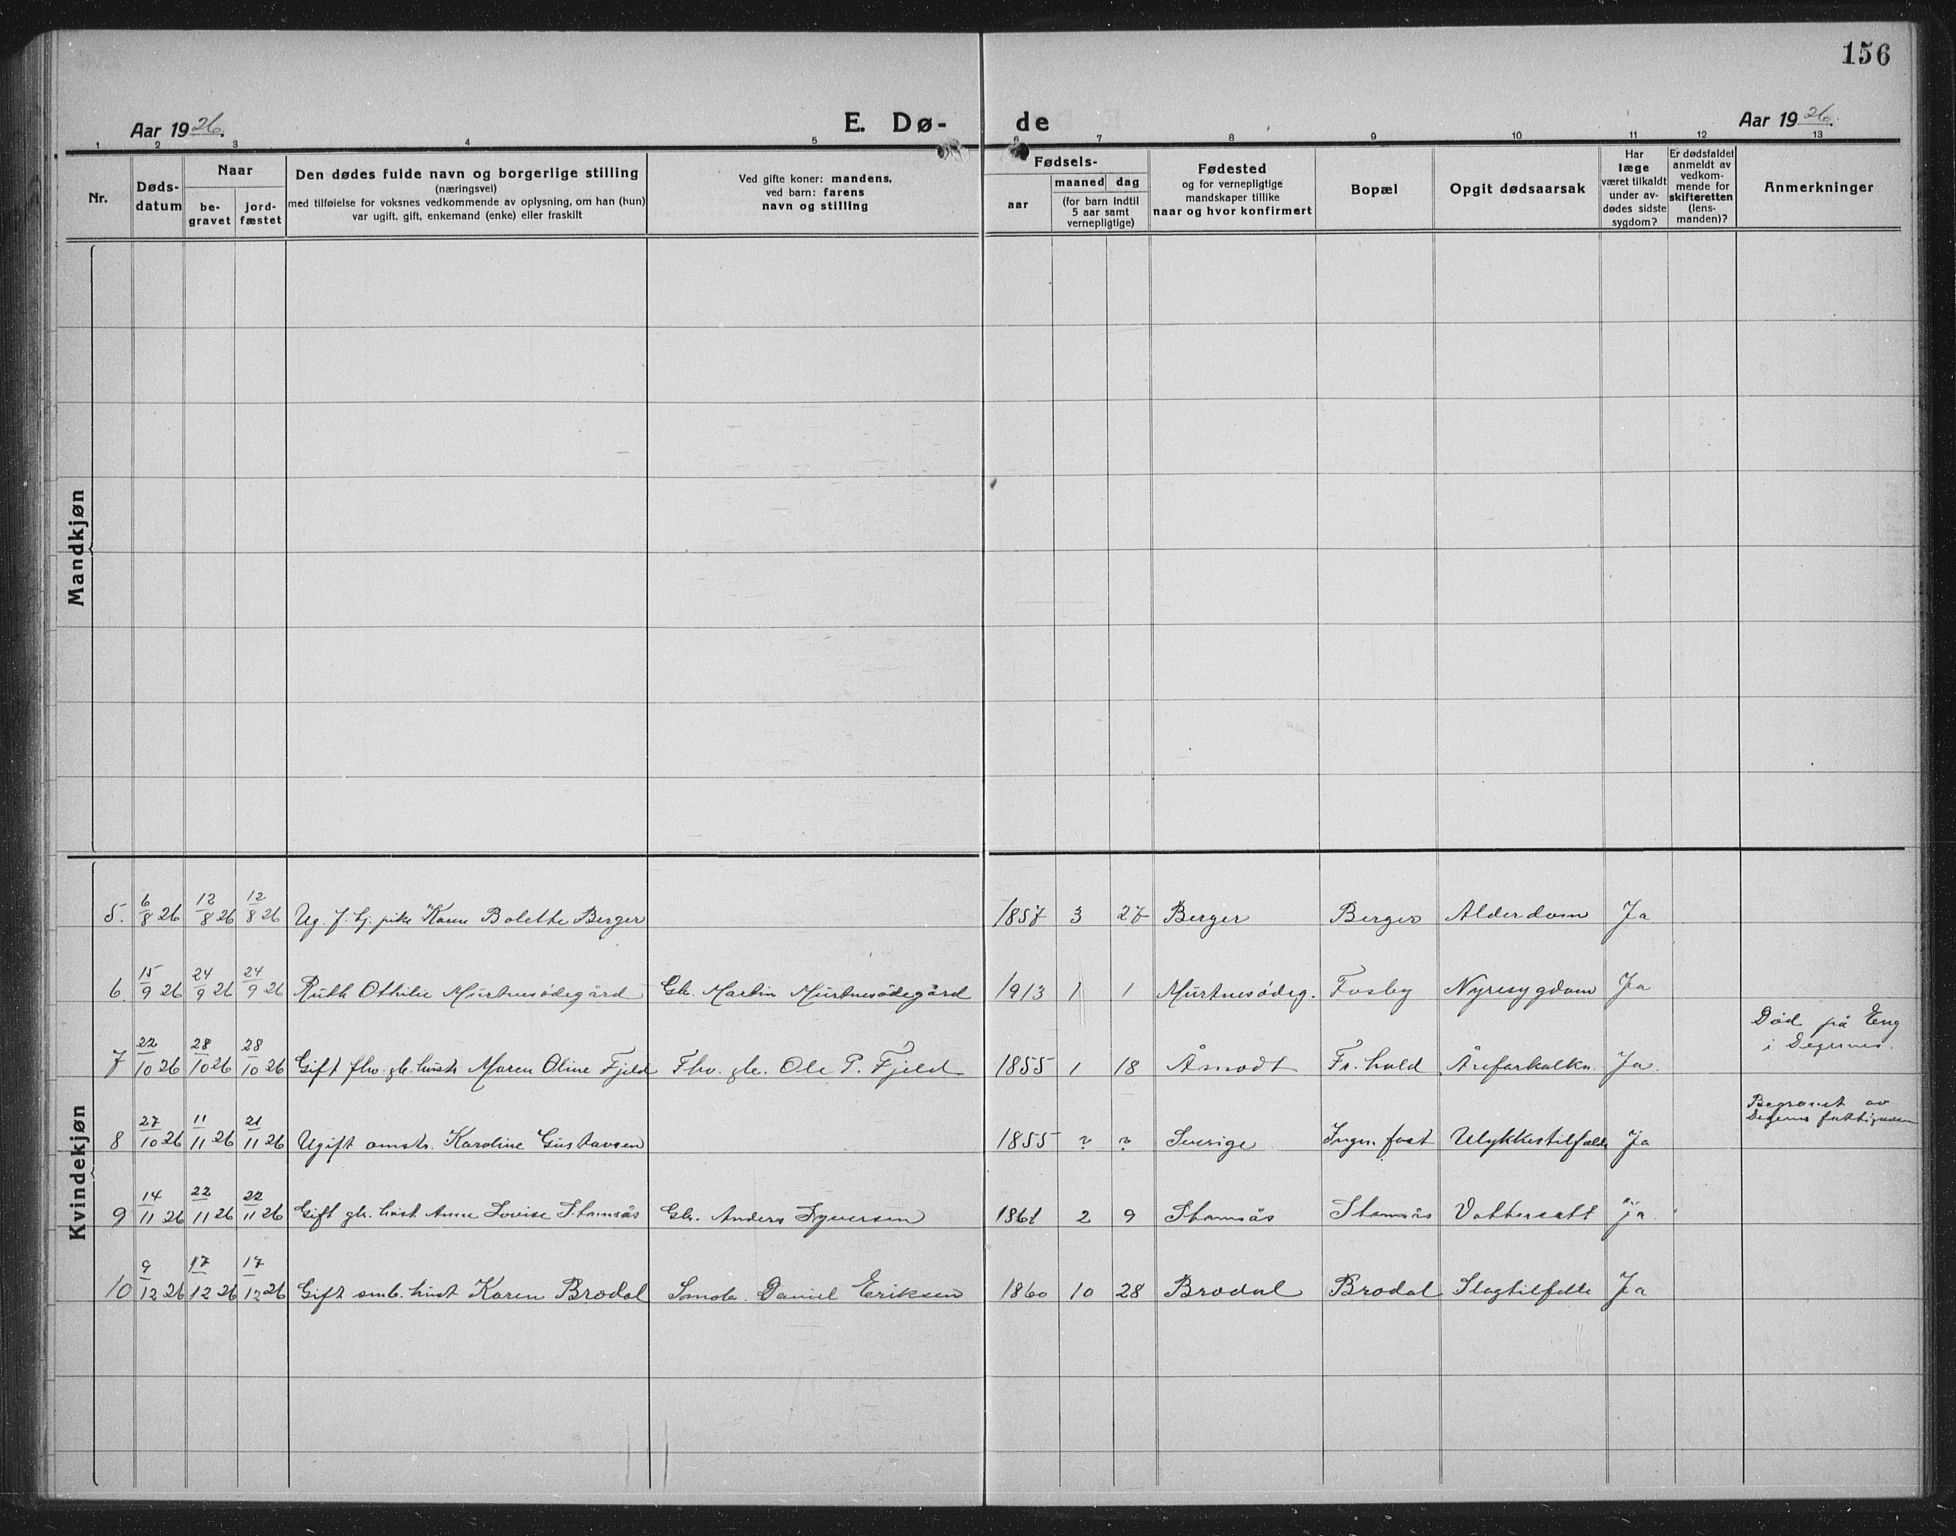 156
Aar 1926.
E. Dø-
de
Aar 1926.
1 2 3 4 5 6 7 8 9 10 11 12 13
Nr.
Døds-
datum
Naar
be-
gravet
jord-
fæstet
Den dødes fulde navn og borgerlige stilling
(næringsvei)
med tilføielse for voksnes vedkommende av oplysning, om han (hun)
var ugift, gift, enkemand (enke) eller fraskilt
Ved gifte koner: mandens,
ved barn: farens
navn og stilling
Fødsels-
aar
maaned dag
(for barn indtil
5 aar samt
vernepligtige)
Fødested
og for vernepligtige
mandskaper tillike
naar og hvor konfirmert
Bopæl
Opgit dødsaarsak
Har
læge
været tilkaldt
under av-
dødes sidste
sygdom?
Er dødsfaldet
anmeldt av
vedkom-
mende for
skifteretten
(lens-
manden)?
Anmerkninger
Mandkjøn
Kvindekjøn
5. 6/8 26 12/8 26 12/8 26 Ug. f. tj. pike Karen Bolette Berger 1857 3 27 Berger Berger Alderdom Ja
6. 15/9 26 24/9 26 24/9 26 Ruth Othilie Murtnesødegård Gb. Martin Murtnesødegård 1913 1 1 Murtnesødeg. Fosby Nyresygdom Ja
7 22/10 26 28/10 26 28/10 26 Gift fhv. gb. hustr Maren Oline Fjeld Fhv. gb. Ole P. Fjeld 1855 1 18 Åmodt Fr.hald Åreforkalkn. Ja.
Død på Eng
i Degernes.
8 27/10 26 11/11 26 21/11 26 Ugift omstr. Karoline Gustavsen 1855 ? ? Sverige Ingen fast Ulykkestilfælde Ja
Begravet av
Degernes fattigvesen
9 14/11 26 22/11 26 22/11 26 Gift gb. hust Anne Lovise Stomsås Gb. Anders Syversen 1861 2 9 Stomsås Stomsås Vattersott Ja.
10 9/12 26 17/12 26 17/12 26 Gift smb. hust Karen Brodal Smbr. Daniel Eriksen 1860 10 28 Brodal Brodal Slagtilfelle Ja